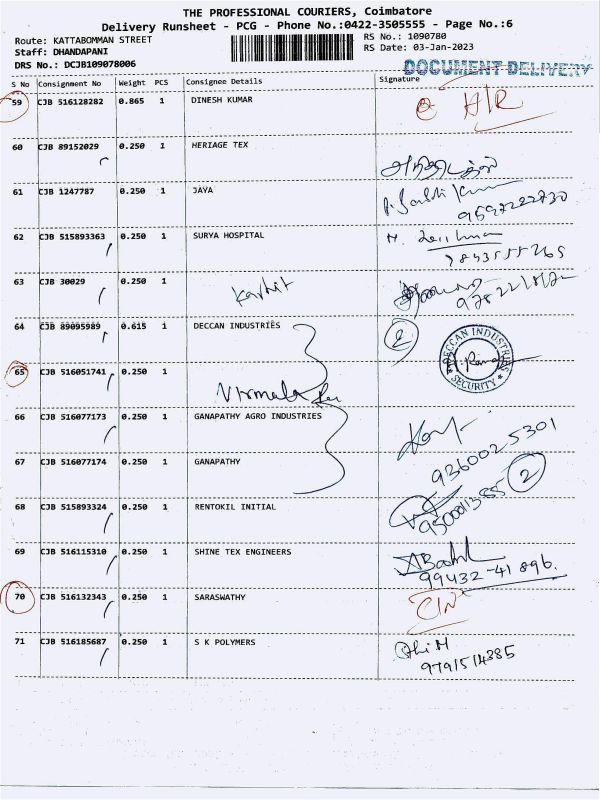 THE PROFESSIONAL COURIERS, Coimbatore
Delivery Runsheet - PCG - Phone No.:0422-3505555 - Page No.:6
Route: KATTABOMMAN STREET
RS No.: 1090780
Staff: DHANDAPANI
RS Date: 03-Jan-2023
DRS No.: DCJB109078006
DOCUMENT DELIVERY
S No Consignment No Weight PCS Consignee Details Signature
59 CJB 516128282 0.865 1 DINESH KUMAR
60 CJB 89152029 0.250 1 HERIAGE TEX
61 CJB 1247787 0.250 1 JAYA
62 CJB 515893363 0.250 1 SURYA HOSPITAL
63 CJB 30029 0.250 1
64 CJB 89095989 0.615 1 DECCAN INDUSTRIES 2
DECCAN INDUSTRIES
SECURITY
65 CJB 516051741 0.250 1
66 CJB 516077173 0.250 1 GANAPATHY AGRO INDUSTRIES
9360025301
67 CJB 516077174 0.250 1 GANAPATHY 2
68 CJB 515893324 0.250 1 RENTOKIL INITIAL
69 CJB 516115310 0.250 1 SHINE TEX ENGINEERS
99432-41896.
70 CJB 516132343 0.250 1 SARASWATHY
71 CJB 516185687 0.250 1 S K POLYMERS